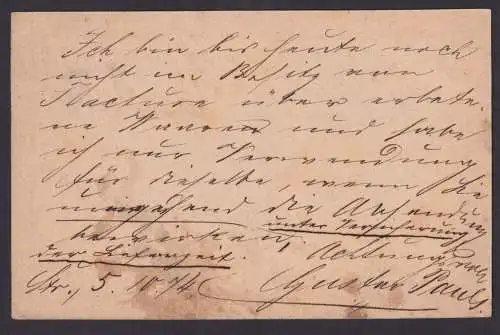 Ich bin bis heute noch
nicht im Besitz von
Factura über erbete-
ne Waaren und habe
ich nur Verwendung
für dieselbe, wenn Sie
umgehend die Absendung
unter Versicherung
bewirken,
der Lieferzeit.
Achtungsvoll
Str., 5. 10. 74. Gustav Pauls.